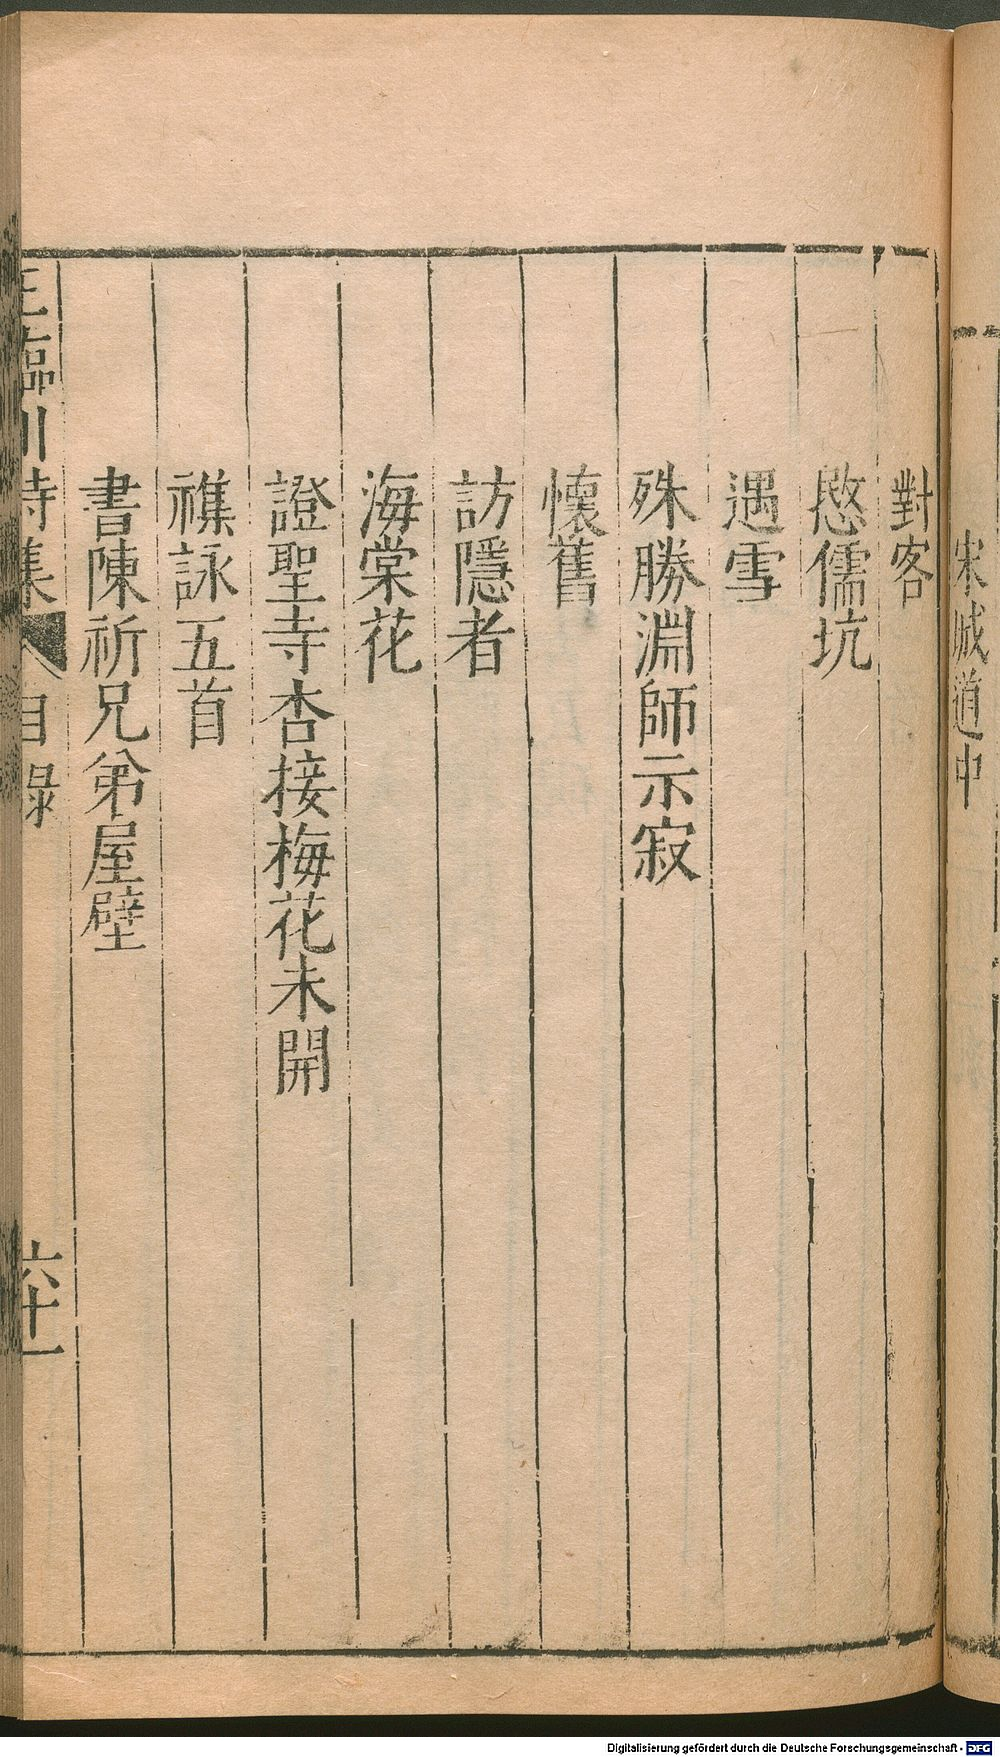 宋城道中
對客
愍儒坑
遇雪
殊勝淵師示寂
懷舊
訪隱者
海棠花
證聖寺杏接梅花未開
襍詠五首
書陳祈兄弟屋壁
王臨川詩集 目錄 六十一
Digitalisierung gefördert durch die Deutsche Forschungsgemeinschaft - DFG